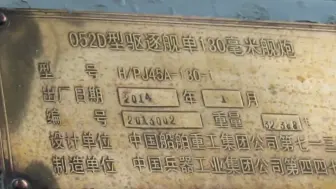 052D型驱逐舰单130毫米舰炮
型号 H/PJ48A-130-1
出厂日期 2014年1月
编号 重量
设计单位 中国船舶重工集团公司第七一
制造单位 中国兵器工业集团公司第四四